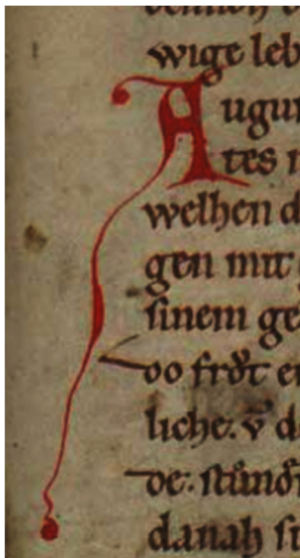 wige leb
Augur
tes
welhen d
gen mit
sinem ge
do froͮt er
liche. v̄ d
de. stůnd
danah si